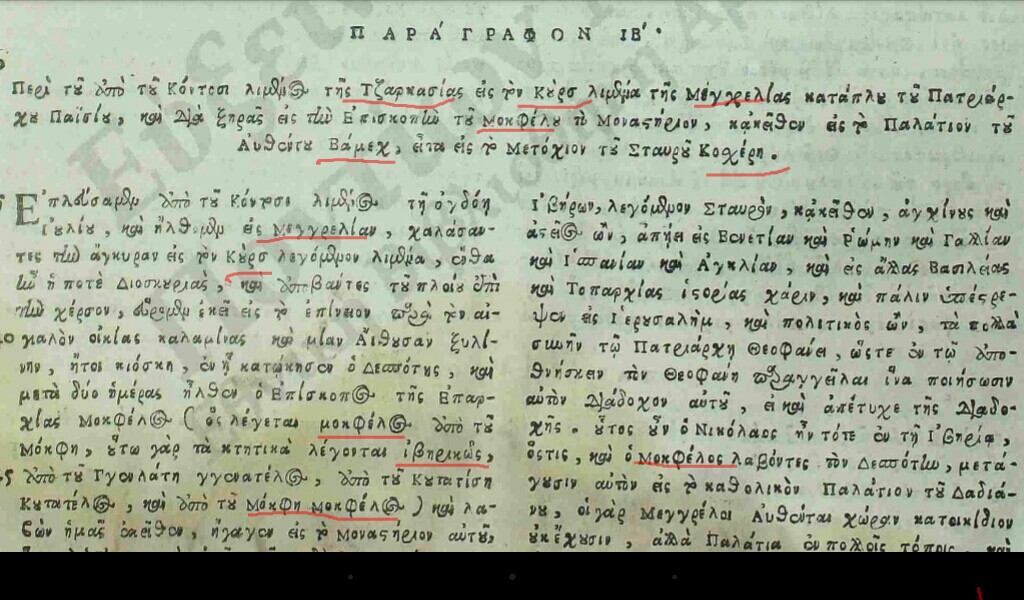 ΠΑΡΑΓΡΑΦΟΝ ΙΒ'.
Περὶ τοῦ ἀπὸ τοῦ Κόντοσι λιμένος τῆς Τζαρκασίας εἰς τὸν Κύρσ λιμένα τῆς Μεγγρελίας κατάπλου τοῦ Πατριάρ-
χου Παϊσίου, καὶ διὰ ξηρᾶς εἰς τὴν Ἐπισκοπὴν τοῦ Μοκφέλου τὸ Μοναστήριον, κἀκεῖθεν εἰς τὸ Παλάτιον τοῦ
Αὐθέντου Βάμεχ, εἶτα εἰς τὸ Μετόχιον τοῦ Σταυροῦ
Ἐπλεύσαμεν ἀπὸ τοῦ Κόντοσι λιμένος τῇ ὀγδόῃ
Ἰουλίου, καὶ ἤλθομεν εἰς Μεγγρελίαν, χαλάσαν-
τες τὴν ἄγκυραν εἰς τὸν Κύρσ λεγόμενον λιμένα, ἔνθα
ἦν ἡ ποτὲ Διοσκουριὰς, καὶ ἀποβάντες τοῦ πλοίου ἐπὶ
τὴν χέρσον, εὕρομεν ἐκεῖ εἰς τὸ ἐπίνειον παρὰ τὸν αἰ-
γιαλὸν οἰκίας καλαμίνας καὶ μίαν Αἴθουσαν ξυλί-
νην, ἤτοι κιόσκη, ἐν ᾗ κατῴκησεν ὁ Δεσπότης, καὶ
μετὰ δύο ἡμέρας ἦλθεν ὁ Ἐπίσκοπος τῆς Ἐπαρ-
χίας Μοκφέλος (ὃς λέγεται μοκφέλος ἀπὸ τοῦ
Μόκφη, οὕτω γὰρ τὰ κτητικὰ λέγονται ἰβηρικῶς,
ἀπὸ τοῦ Γγουλάτη γγουλατέλος, ἀπὸ τοῦ Κυτατίση
Κυτατέλος, καὶ ἀπὸ τοῦ Μόκφη μοκφέλος) καὶ λα-
βὼν ἡμᾶς ἐκεῖθεν, ἤγαγεν εἰς τὸ Μοναστήριον αὐτοῦ,
Ἰβήρων, λεγόμενον Σταυρὸν, κἀκεῖθεν, ἀγχίνους καὶ
ἀστεῖος ὢν, ἀπῄει εἰς Βενετίαν καὶ Ῥώμην καὶ Γαλλίαν
καὶ Ἱσπανίαν καὶ Ἀγκλίαν, καὶ εἰς ἄλλας Βασιλείας
καὶ Τοπαρχίας ἱστορίας χάριν, καὶ πάλιν ὑπέστρε-
ψεν εἰς Ἱερουσαλὴμ, καὶ πολιτικὸς ὢν, τὰ πολλὰ
συνῆν τῷ Πατριάρχῃ Θεοφάνει, ὥστε ἐν τῷ ἀπο-
θνήσκειν τὸν Θεοφάνη παραγγεῖλαι ἵνα ποιήσωσιν
αὐτὸν διάδοχον αὐτοῦ, εἰ καὶ ἀπέτυχε τῆς διαδο-
χῆς. οὗτος οὖν ὁ Νικόλαος ἦν τότε ἐν τῇ Ἰβηρίᾳ,
ὅστις, καὶ ὁ Μοκφέλος λαβόντες τὸν Δεσπότην, μετά-
γουσιν αὐτὸν εἰς τὸ καθολικὸν Παλάτιον τοῦ Δαδιά-
νου, οἱ γὰρ Μεγγρέλοι Αὐθένται χώραν κατοικίδιον
οὐκ ἔχουσιν, ἀλλὰ Παλάτια ἐν πολλοῖς τόποις, καὶ